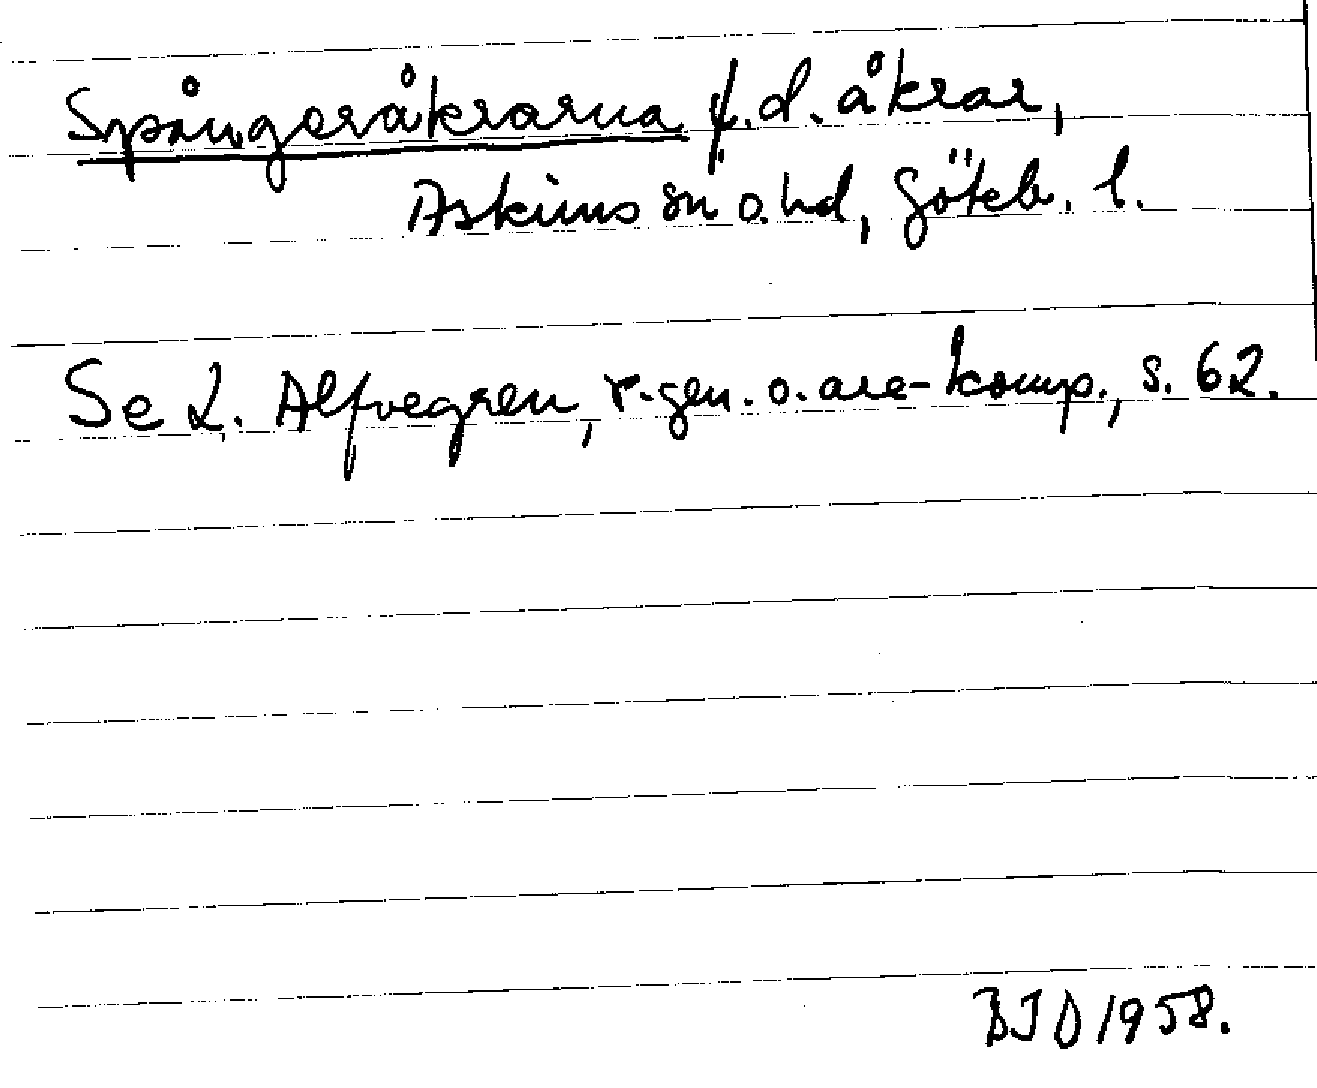 Spångaråkrarna f.d. åkrar,
Askims sn o. hd, Göteb. l.
Se L. Alfvegren, r-gen. o. are-komp., s. 62.
BJD 1958.